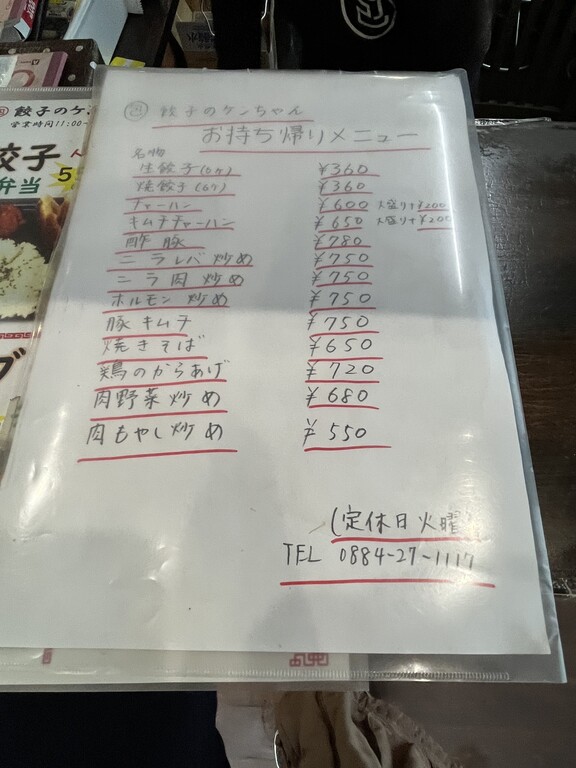 餃子のケンちゃん
お持ち帰りメニュー
名物
生餃子(6ヶ) ¥360
焼餃子(6ヶ) ¥360
チャーハン ¥600 大盛り+¥200
キムチチャーハン ¥650 大盛り+¥200
酢豚 ¥780
ニラレバ炒め ¥750
ニラ肉炒め ¥750
ホルモン炒め ¥750
豚キムチ ¥750
焼きそば ¥650
鶏のからあげ ¥720
肉野菜炒め ¥680
肉もやし炒め ¥550
(定休日火曜)
TEL 0884-27-1117
餃子のケン
営業時間11:00~
餃子
弁当